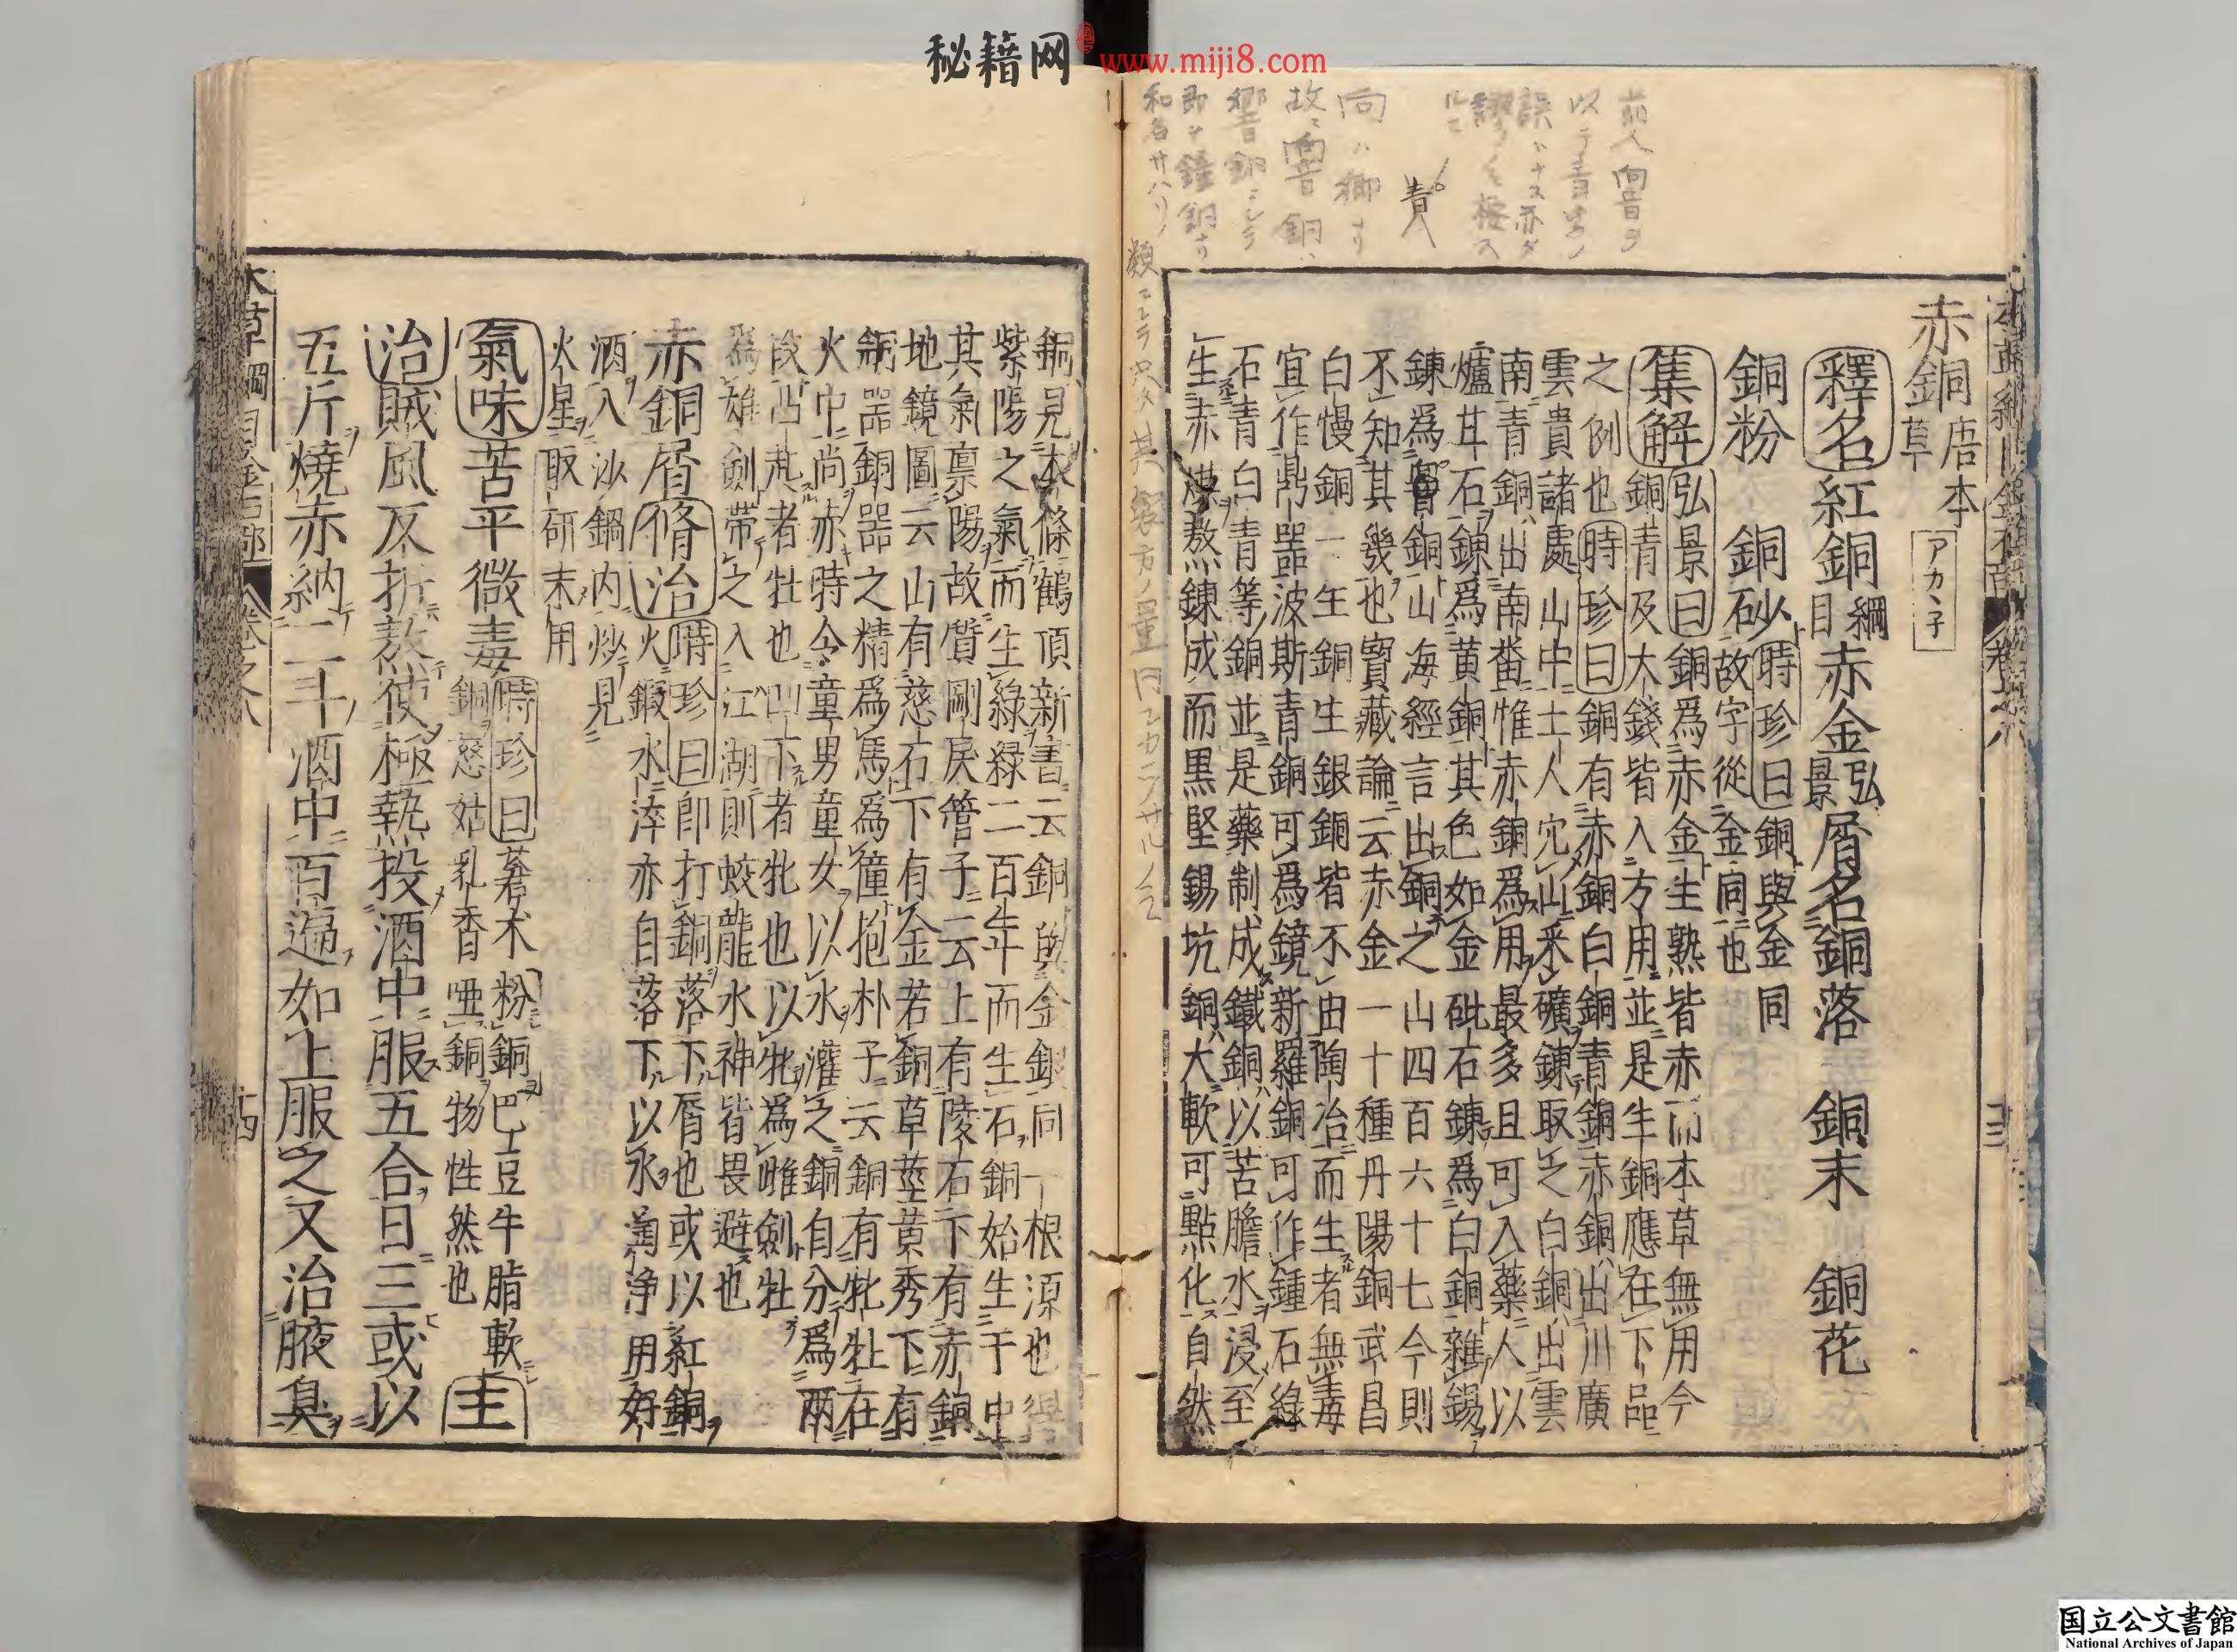 秘籍网 www.miji8.com
赤銅唐本草
アカヽ子
釋名紅銅綱目赤金弘景屑名銅落 銅末 銅花
銅粉 銅砂時珍曰銅與金同故字從金同也
集解弘景曰銅爲赤金生熟皆赤而本草無用今
銅青及大錢皆入方用並是生銅應在下品
之例也時珍曰銅有赤銅白銅青銅赤銅出川廣
雲貴諸處山中土人穴山采礦鍊取之白銅出雲
南青銅出南番惟赤銅爲用最多且可入藥人以
爐甘石鍊爲黄銅其色如金砒石鍊爲白銅雜錫
鍊爲響銅山海經言出銅之山四百六十七今則
不知其幾也寳藏論云赤金一十種丹陽銅武昌
白慢銅一生銅生銀銅皆不由陶冶而生者無毒
宜作鼎器波斯青銅可爲鏡新羅銅可作鍾石緑
石青白青等銅並是藥制成鐵銅以苦膽水浸至
生赤煤熬鍊成而黒堅錫坑銅大軟可點化自然
銅見本條鶴頂新書云銅與金銀同一根源也得
紫陽之氣而生緑緑二百年而生石銅始生于中
其氣禀陽故質剛戻管子云上有陵石下有赤銅
地鏡圖云山有慈石下有金若銅草莖黄秀下有
銅器銅器之精爲馬爲僮抱朴子云銅有牝牡在
火中尚赤時令童男童女以水灌之銅自分爲兩
段凸起者牡也凹下者牝也以牝爲雌劍牡
爲雄劍帶之入江湖則蛟龍水神皆畏避也
赤銅屑脩治時珍曰即打銅落下屑也或以紅銅
火鍛水淬亦自落下以水淘淨用好
酒入沙鍋内炒見
火星取研末用
氣味苦平微毒時珍曰蒼术粉銅巴豆牛脂軟
銅慈姑乳香啞銅物性然也主
治賊風反折熬使極熱投酒中服五合日三或以
五斤燒赤納二斗酒中百遍如上服之又治腋臭
責
類
国立公文書館
National Archives of Japan